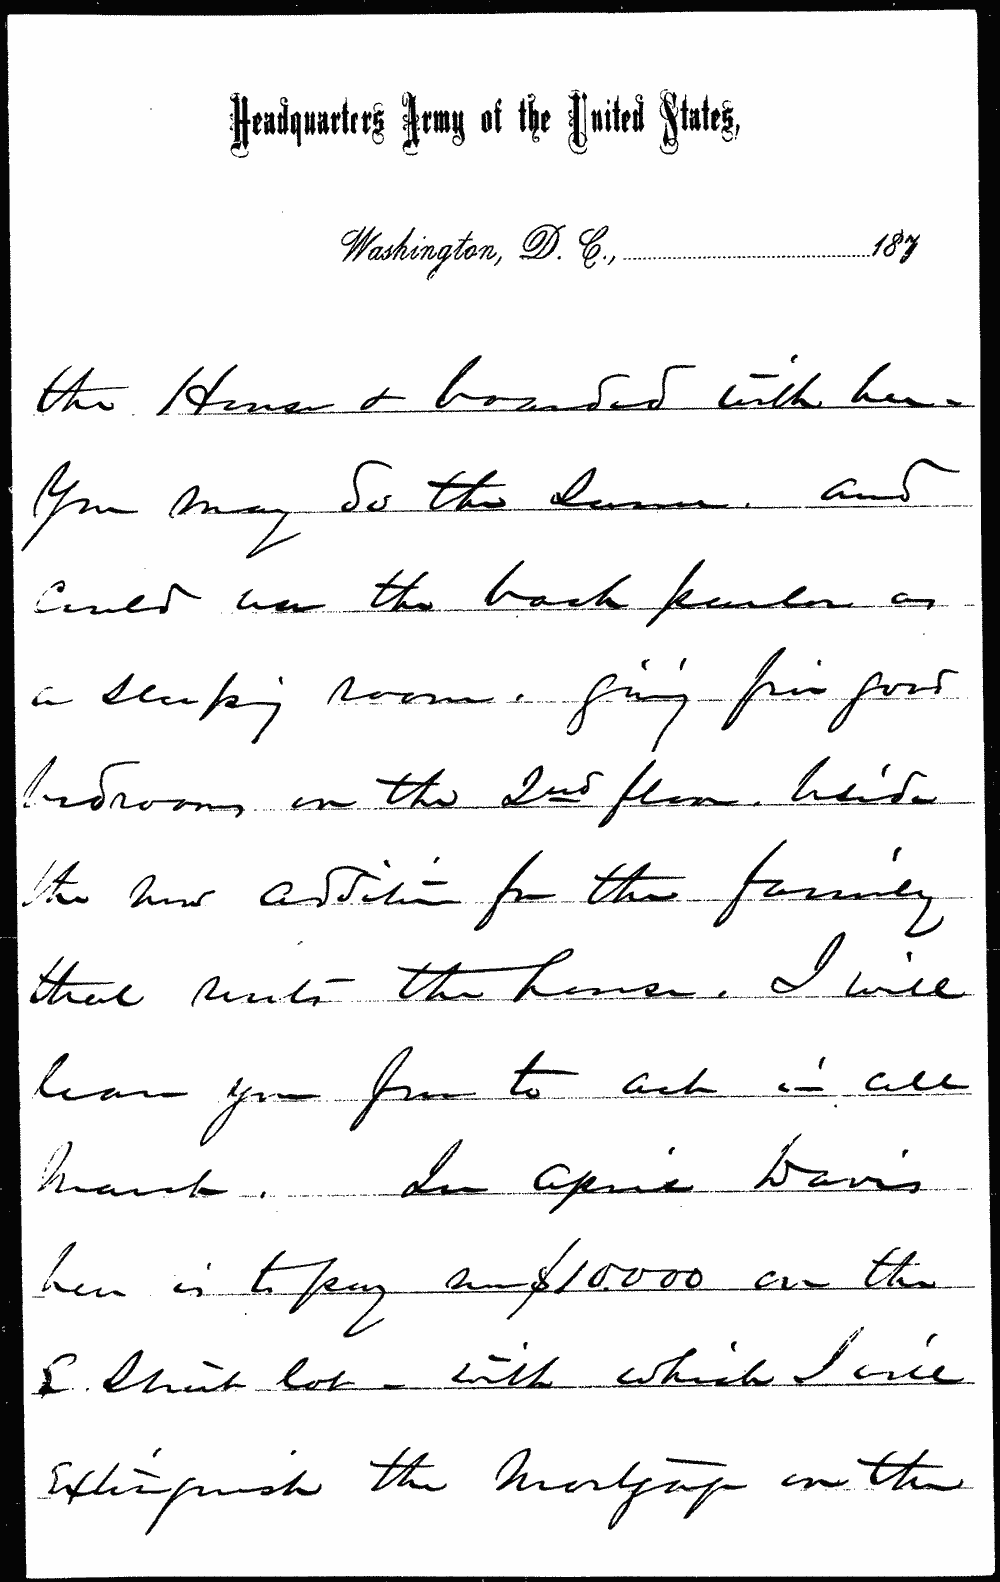 Headquarters Army of the United States,
Washington, D. C., 187
the House & boarded with her -
You may do the same. and
could use the back parlor as
a sleeping room. giving five good
bedrooms on the 2nd floor. beside
the new addition for the family
that rents the house. I will
leave you free to act in all
March. In April Davis
here is to pay me $10.000 on the
E Street lot - with which I will
Extinguish the Mortgage on the